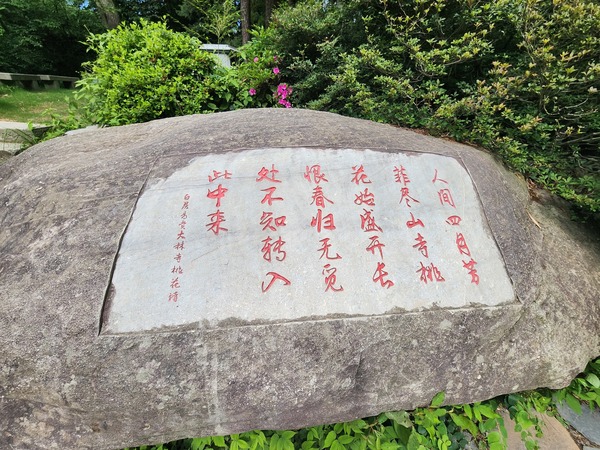 人间四月芳
菲尽山寺桃
花始盛开长
恨春归无觅
处不知转入
此中来
白居易大林寺桃花诗